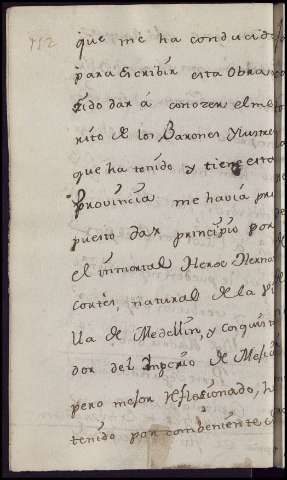 152
que me ha conducid
para escribir esta Obra
sido dar á conozer el me
rito de los Barones Ylustre
que ha tenido y tiene esta
Provincia me havia pro
puesto dar principio por
el inmortal Heroe Herna
Cortés, natural de la Vi
lla de Medellin, y conquis
dor del Imperio de Mexi
pero mejor reflesionado, h
tenido por combeniente